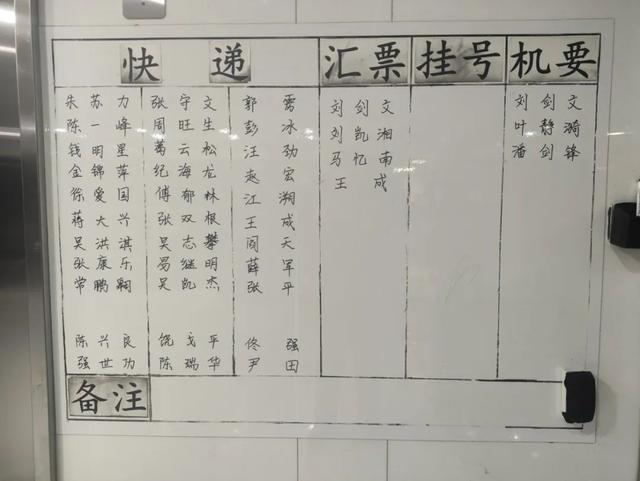 快递
朱苏力
陈一峰
钱明星
金锦萍
徐爱国
蒋大兴
吴洪淇
张康乐
常鹏翱
陈兴良
强世功
张守文
周旺生
葛云松
纪海龙
傅郁林
张双根
吴志攀
易继明
吴凯杰
饶戈平
陈瑞华
郭雳
彭冰
汪劲
赵宏
江溯
王成
阎天
薛军
张平
佟强
尹田
汇票
刘剑文
刘凯湘
马忆南
王成
挂号
机要
刘剑文
叶静漪
潘剑锋
备注